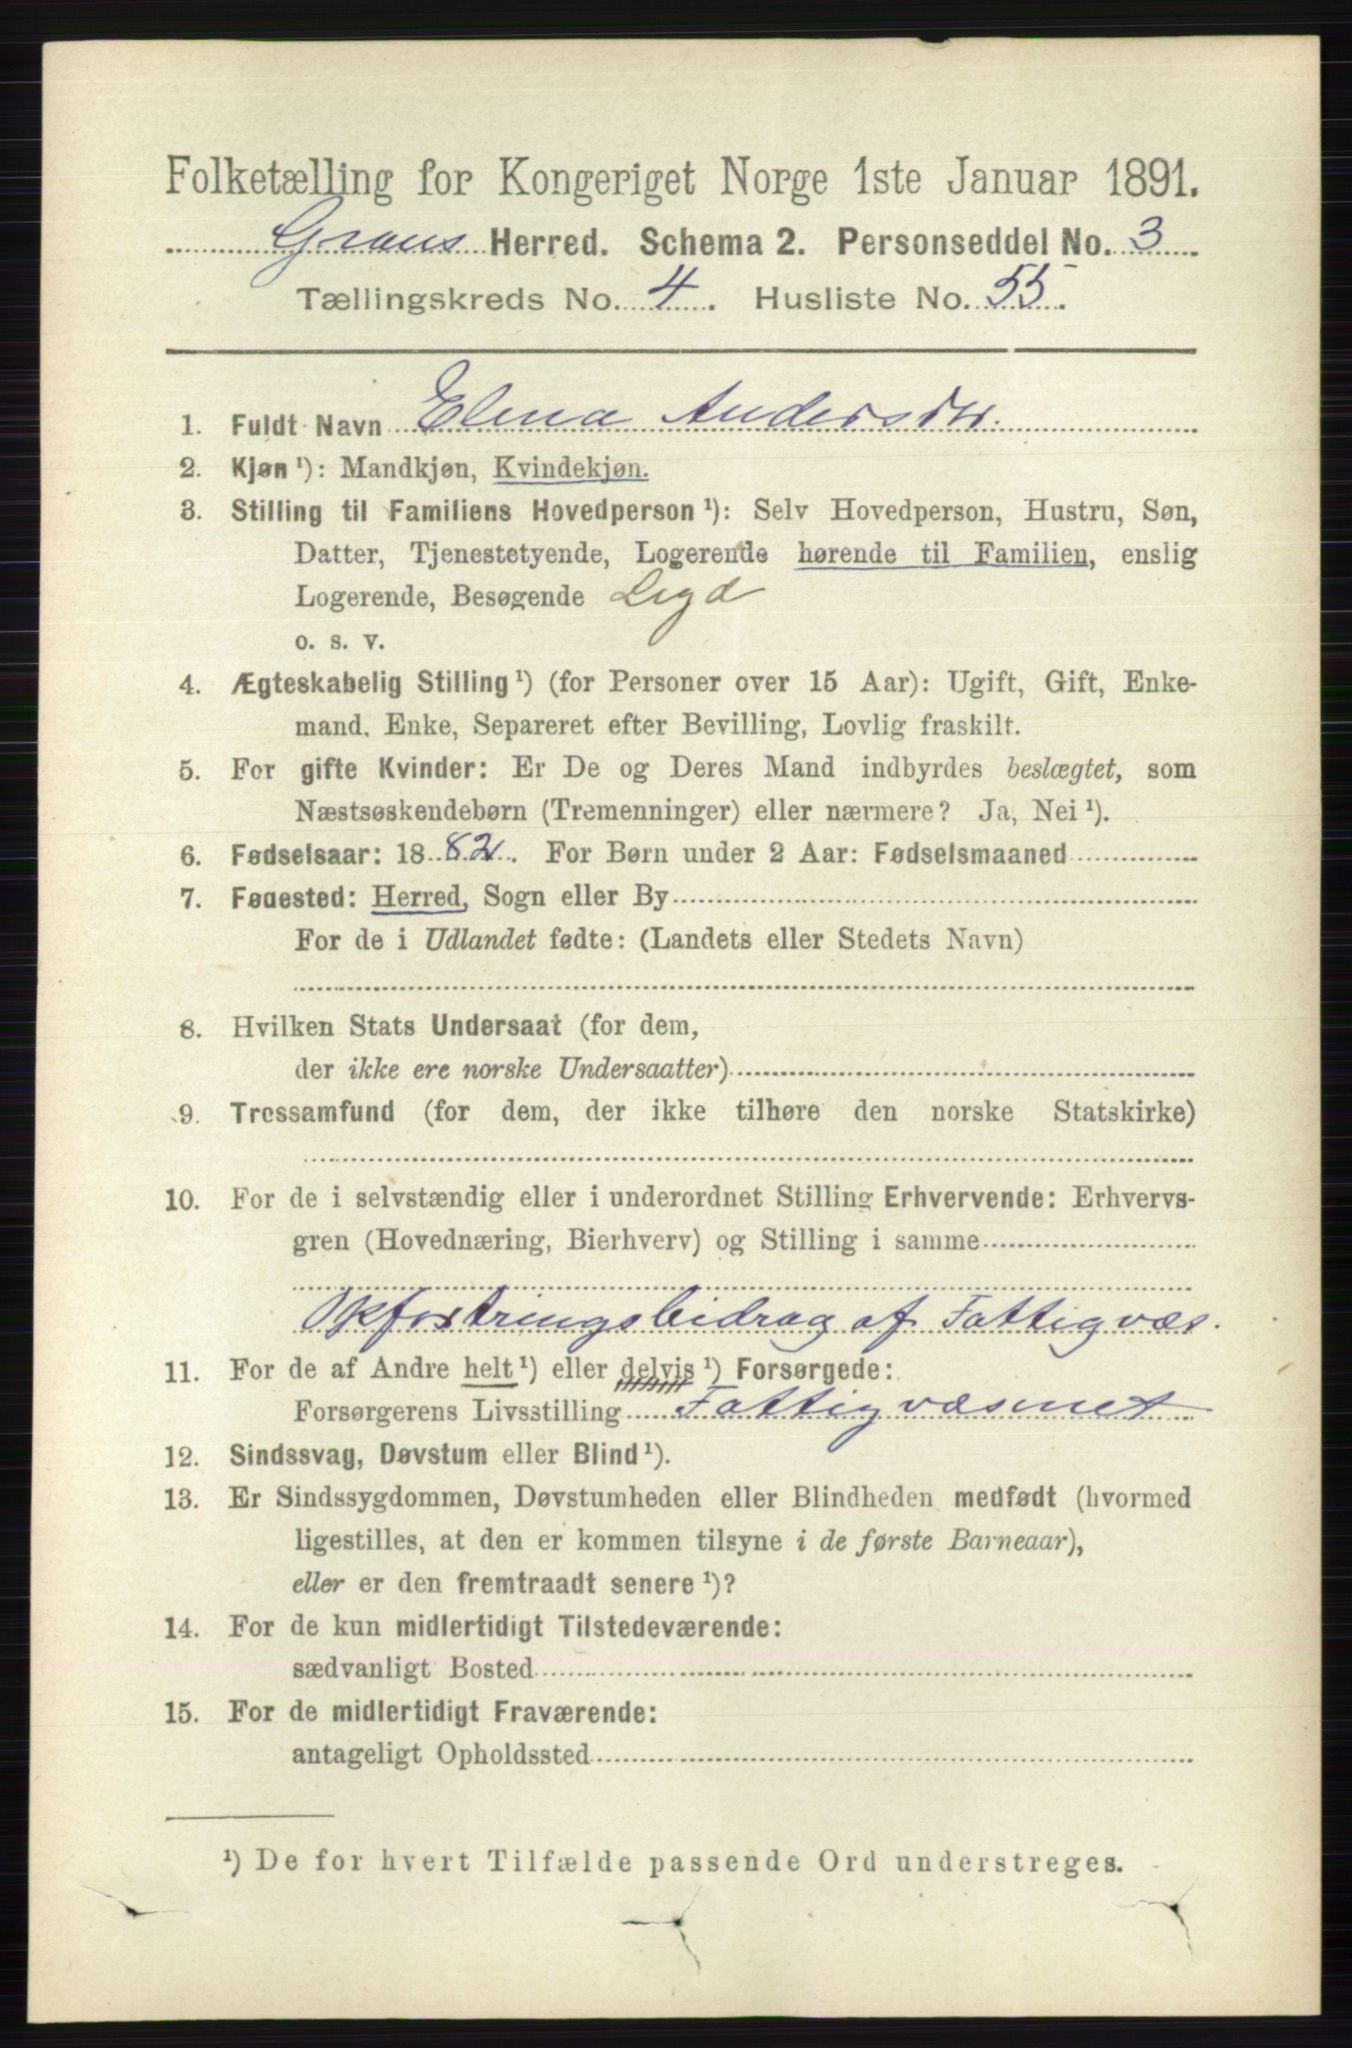 Folketælling for Kongeriget Norge 1ste Januar 1891.
Grans Herred. Schema 2. Personseddel No. 3
Tællingskreds No. 4. Husliste No. 55.
1. Fuldt Navn Elma Andersdtr.
2. Kjøn ¹): Mandkjøn, Kvindekjøn.
3. Stilling til Familiens Hovedperson ¹): Selv Hovedperson, Hustru, Søn,
Datter, Tjenestetyende, Logerende hørende til Familien, enslig
Logerende, Besøgende Legd
o. s. v.
4. Ægteskabelig Stilling ¹) (for Personer over 15 Aar): Ugift, Gift, Enke-
mand, Enke, Separeret efter Bevilling, Lovlig fraskilt.
5. For gifte Kvinder: Er De og Deres Mand indbyrdes beslægtet, som
Næstsøskendebørn (Tremenninger) eller nærmere? Ja, Nei ¹).
6. Fødselsaar: 1882. For Børn under 2 Aar: Fødselsmaaned
7. Fødested: Herred, Sogn eller By
For de i Udlandet fødte: (Landets eller Stedets Navn)
8. Hvilken Stats Undersaat (for dem,
der ikke ere norske Undersaatter)
9. Trossamfund (for dem, der ikke tilhøre den norske Statskirke)
10. For de i selvstændig eller i underordnet Stilling Erhvervende: Erhvervs-
gren (Hovednæring, Bierhverv) og Stilling i samme
Opfostringsbidrag af Fattigvæs.
11. For de af Andre helt ¹) eller delvis ¹) Forsørgede:
Forsørgerens Livsstilling Fattigvæsnet
12. Sindssvag, Døvstum eller Blind ¹).
13. Er Sindssygdommen, Døvstumheden eller Blindheden medfødt (hvormed
ligestilles, at den er kommen tilsyne i de første Barneaar),
eller er den fremtraadt senere ¹)?
14. For de kun midlertidigt Tilstedeværende:
sædvanligt Bosted
15. For de midlertidigt Fraværende:
antageligt Opholdssted
¹) De for hvert Tilfælde passende Ord understreges.